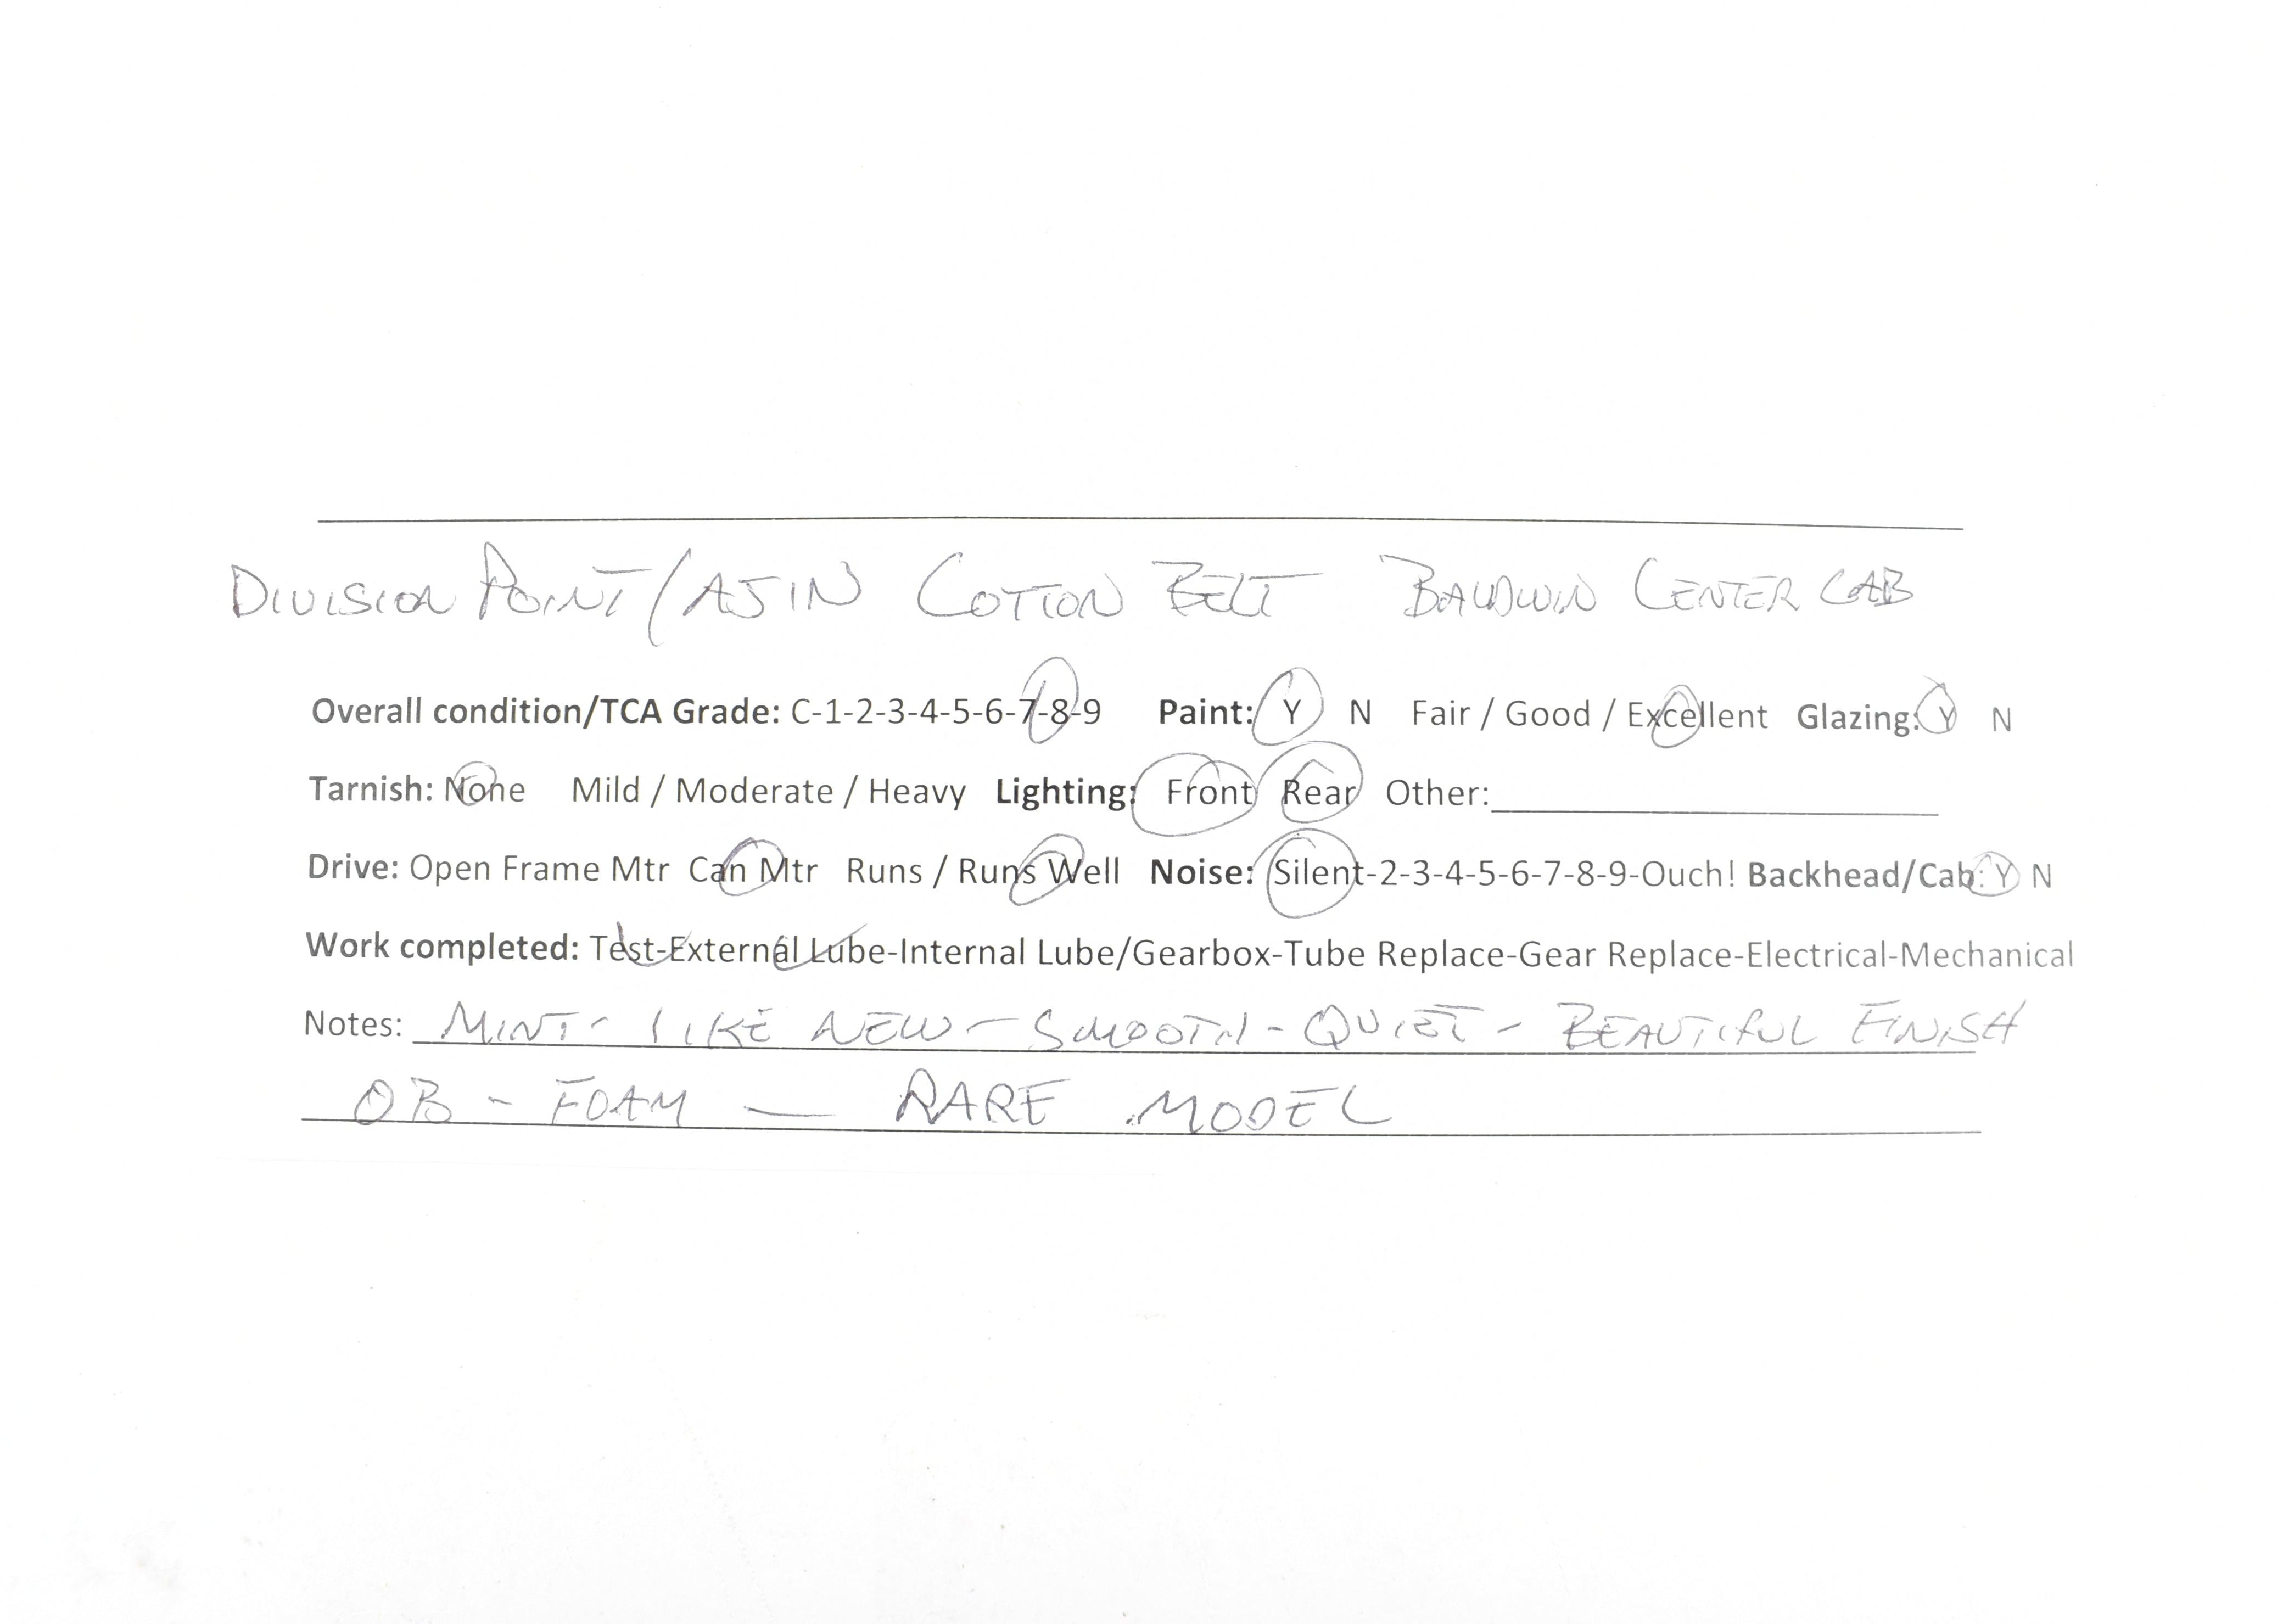 DIVISION POINT/AJIN COTTON BELT BALDWIN CENTER CAB
Overall condition/TCA Grade: C-1-2-3-4-5-6-7-8-9 Paint: Y N Fair / Good / Excellent Glazing: Y N
Tarnish: None Mild / Moderate / Heavy Lighting: Front Rear Other:
Drive: Open Frame Mtr Can Mtr Runs / Runs Well Noise: Silent-2-3-4-5-6-7-8-9-Ouch! Backhead/Cab: Y N
Work completed: Test-External Lube-Internal Lube/Gearbox-Tube Replace-Gear Replace-Electrical-Mechanical
Notes: MINT - LIKE NEW - SMOOTH - QUIET - BEAUTIFUL FINISH
OB - FOAM — RARE MODEL